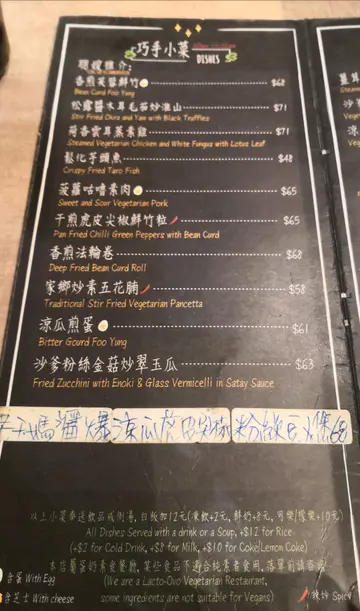 巧手小菜
DISHES
香煎芙蓉鮮竹 $68
Bean Curd Foo Yung
松露醬木耳毛茄炒淮山 $71
Stir Fried Okra and Yam with Black Truffles
荷香雲耳蒸素雞 $71
Steamed Vegetarian Chicken and White Fungus with Lotus Leaf
鬆化芋頭魚 $48
Crispy Fried Taro Fish
菠蘿咕嚕素肉 $65
Sweet and Sour Vegetarian Pork
干煎虎皮尖椒鮮竹粒 $65
Pan Fried Chilli Green Peppers with Bean Curd
香煎法輪卷 $68
Deep Fried Bean Curd Roll
家鄉炒素五花腩 $58
Traditional Stir Fried Vegetarian Pancetta
涼瓜煎蛋 $61
Bitter Gourd Foo Yung
沙爹粉絲金菇炒翠玉瓜 $63
Fried Zucchini with Enoki & Glass Vermicelli in Satay Sauce
醬爆涼瓜虎皮尖椒粉絲豆
以上小菜奉送飲品或例湯, 白飯加12元(凍飲+2元, 鮮奶+8元, 可樂/檸樂+10元)
All Dishes Served with a drink or a Soup, +$12 for Rice
(+$2 for Cold Drink, +$8 for Milk, +$10 for Coke/Lemon Coke)
本店屬蛋奶素食餐廳, 某些食品不適合純素者食用, 落單前請咨詢
(We are a Lacto-Ovo Vegetarian Restaurant,
some ingredients are not suitable for Vegans)
含蛋 With Egg
含芝士 With cheese
辣 Spicy